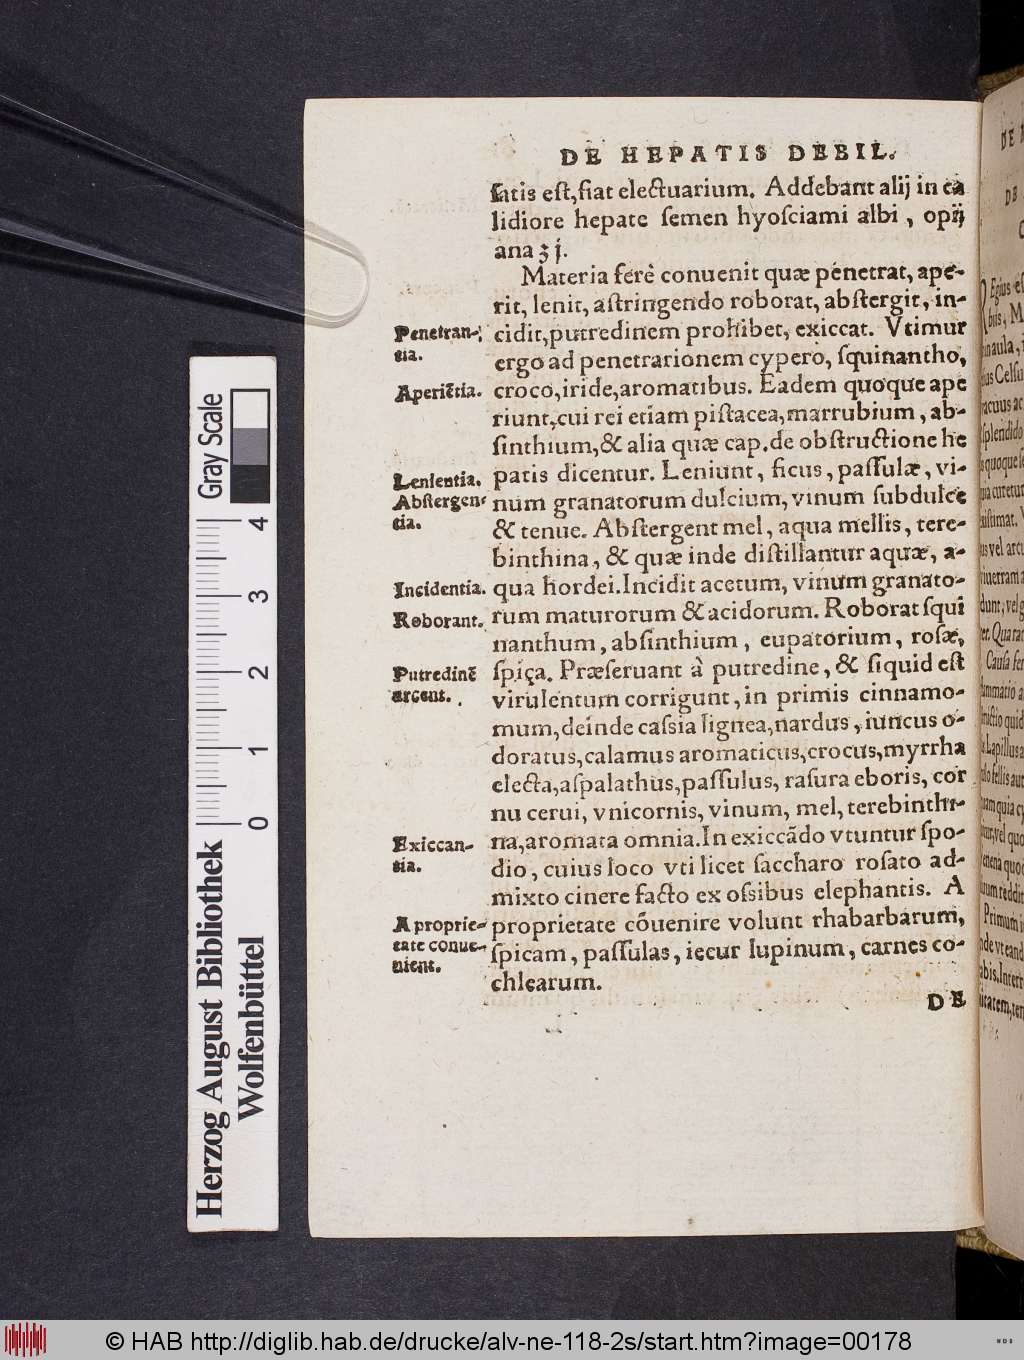 DE HEPATIS DEBIL.
ſatis eſt, fiat electuarium. Addebant alij in ca
lidiore hepate ſemen hyoſciami albi, opij
ana ʒ j.
Materia ferè conuenit quæ penetrat, ape-
rit, lenit, aſtringendo roborat, abſtergit, in-
cidit, putredinem prohibet, exiccat. Vtimur
ergo ad penetrationem cypero, ſquinantho,
croco, iride, aromatibus. Eadem quoque ape
riunt, cui rei etiam piſtacea, marrubium, ab-
ſinthium, & alia quæ cap. de obſtructione he
patis dicentur. Leniunt, ficus, paſſulæ, vi-
num granatorum dulcium, vinum ſubdulce
& tenue. Abſtergent mel, aqua mellis, tere-
binthina, & quæ inde diſtillantur aquæ, a-
qua hordei. Incidit acetum, vinum granato-
rum maturorum & acidorum. Roborat ſqui
nanthum, abſinthium, eupatorium, roſæ,
ſpica. Præſeruant à putredine, & ſiquid eſt
virulentum corrigunt, in primis cinnamo-
mum, deinde caſsia lignea, nardus, iuncus o-
doratus, calamus aromaticus, crocus, myrrha
electa, aſpalathus, paſſulus, raſura eboris, cor
nu cerui, vnicornis, vinum, mel, terebinthi-
na, aromata omnia. In exiccãdo vtuntur ſpo-
dio, cuius loco vti licet ſaccharo roſato ad-
mixto cinere facto ex oſsibus elephantis. A
proprietate cõuenire volunt rhabarbarum,
ſpicam, paſſulas, iecur lupinum, carnes co-
chlearum.
DE
Penetran-
tia.
Aperiẽtia.
Lenientia.
Abſtergen-
tia.
Incidentia.
Roborant.
Putredinẽ
arcent.
Exiccan-
tia.
A proprie-
tate conue-
nient.
Gray Scale
4
3
2
1
0
Herzog August Bibliothek
Wolfenbüttel
© HAB http://diglib.hab.de/drucke/alv-ne-118-2s/start.htm?image=00178